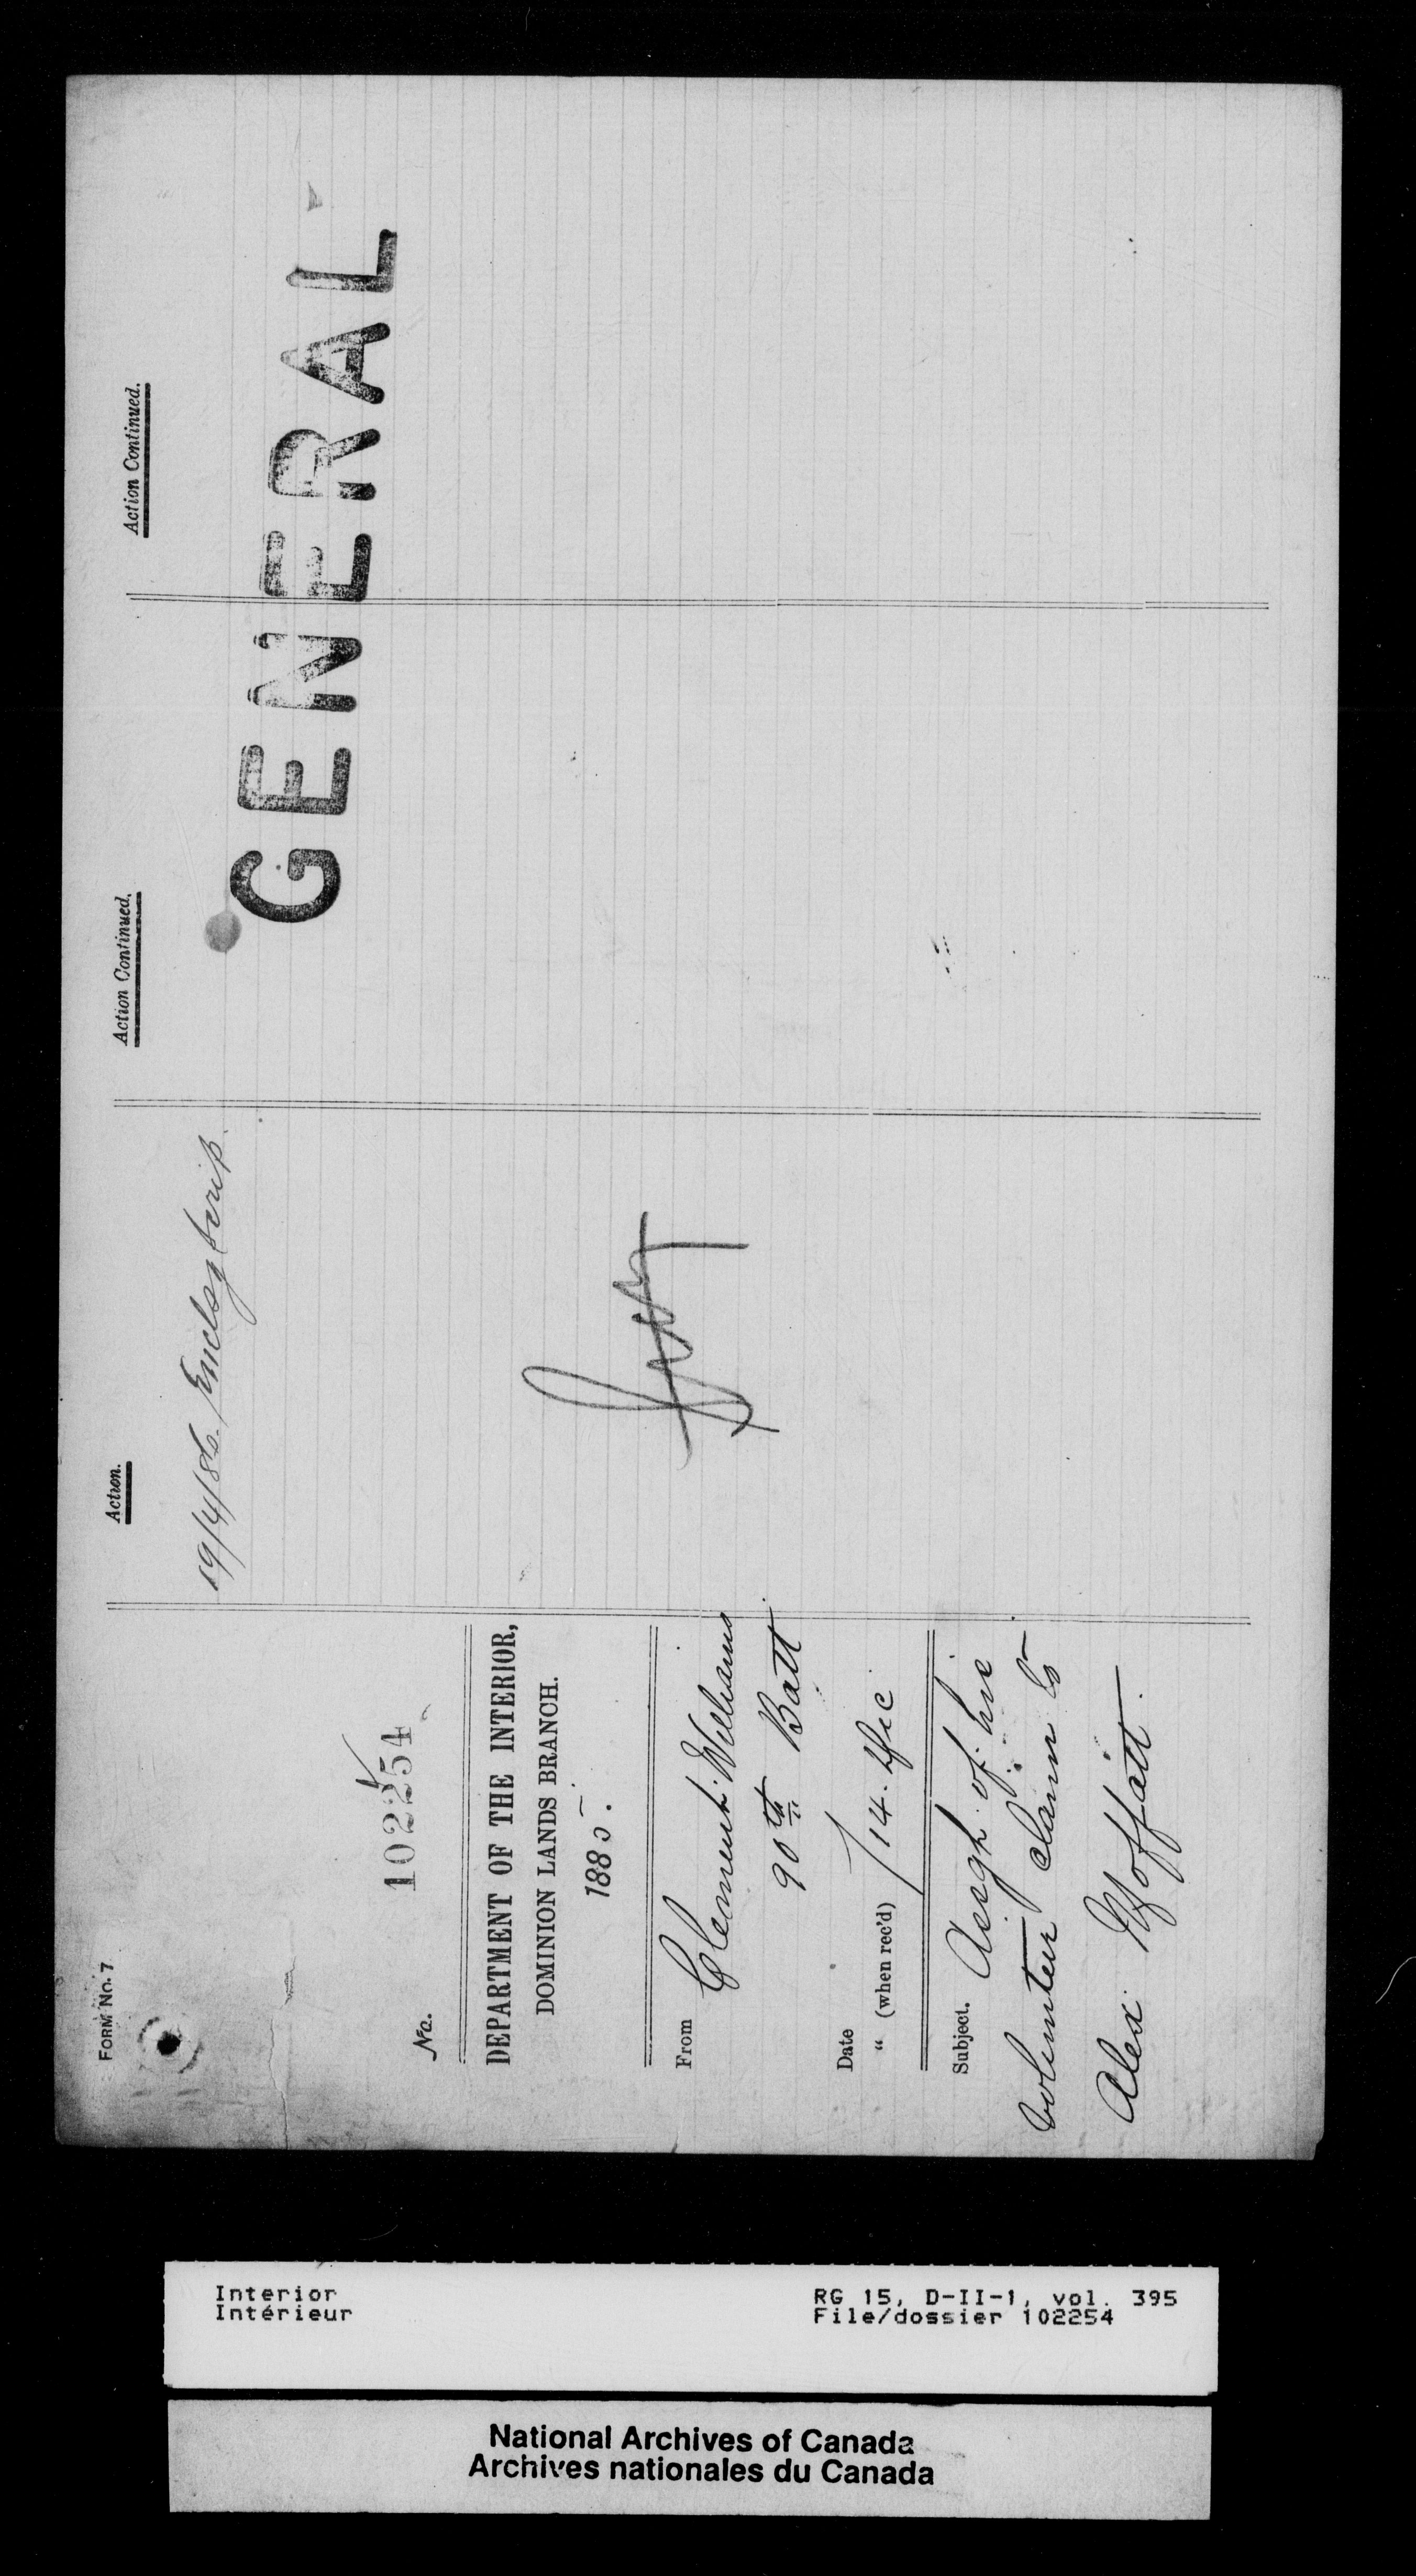 FORM No. 7
No. 102254
DEPARTMENT OF THE INTERIOR,
DOMINION LANDS BRANCH.
1885.
From Clement Williams
90th Batt
Date
" (when rec'd) 14. Dec
Subject. Assgt. of his
Volunteer claim to
Alex. Moffatt.
Action.
19/4/86. Enclsg Scrip.
Action Continued.
Action Continued.
GENERAL
Interior
Intérieur
RG 15, D-II-1, vol. 395
File/dossier 102254
National Archives of Canada
Archives nationales du Canada